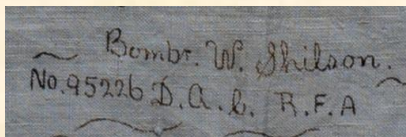 Bombr. W. Shilson.
No. 95226 D.A.C. R.F.A